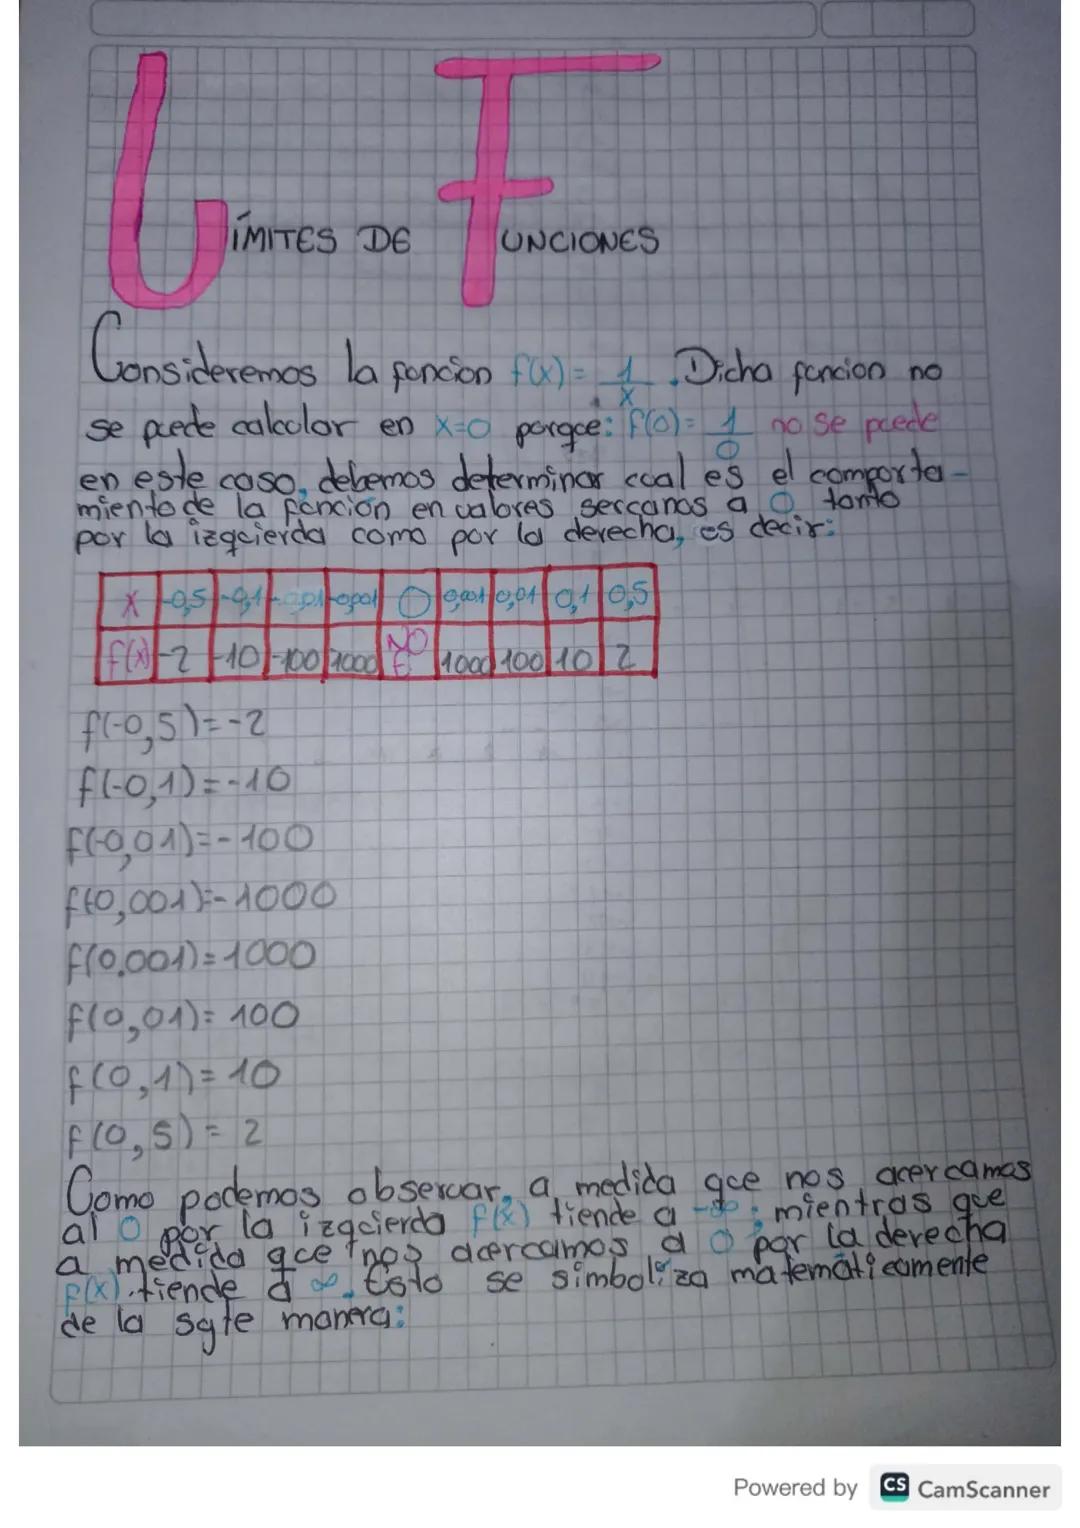 LÍMITES DE FUNCIONES
Consideremos la función f(x)= 1/x. Dicha funcion no
se puede calcular en x=0 porque: f(0)= 1/0 no se puede
en este caso, debemos determinar cual es el comporta-
miento de la función en valores sercanos a 0 tanto
por la izquierda como por la derecha, es decir:
X -0,5 -0,1 -0,01 -0,001 0 0,001 0,01 0,1 0,5
f(x) -2 -10 -100 -1000 NO E 1000 100 10 2
f(-0,5)=-2
f(-0,1)=-10
f(-0,01)=-100
f(-0,001)=-1000
f(0,001)=1000
f(0,01)=100
f(0,1)=10
f(0,5)=2
Como podemos observar, a medida que nos acercamos
al 0 por la izquierda f(x) tiende a -∞; mientras que
a medida que nos acercamos a 0 por la derecha
f(x) tiende a ∞. Esto se simboliza matemáticamente
de la sgte manera:
Powered by CS CamScanner